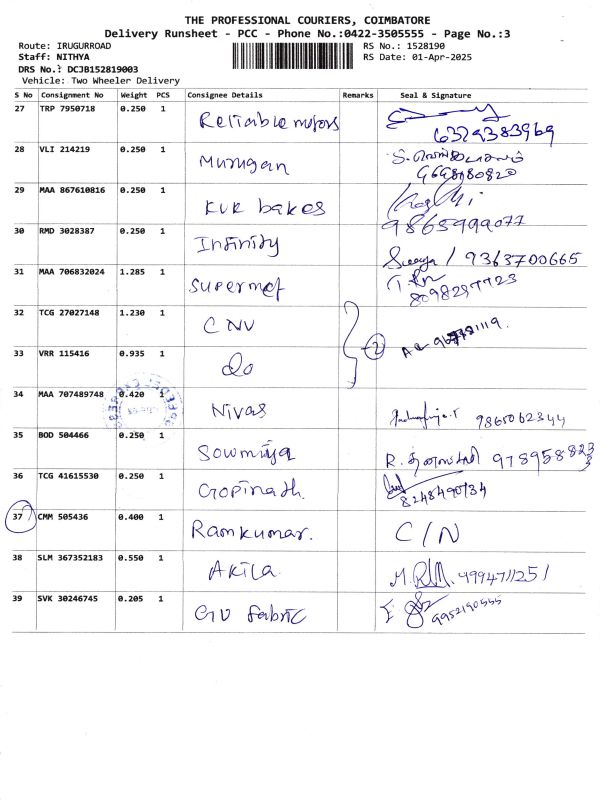 THE PROFESSIONAL COURIERS, COIMBATORE
Delivery Runsheet - PCC - Phone No.:0422-3505555 - Page No.:3
Route: IRUGURROAD RS No.: 1528190
Staff: NITHYA RS Date: 01-Apr-2025
DRS No.: DCJB152819003
Vehicle: Two Wheeler Delivery
S No Consignment No Weight PCS Consignee Details Remarks Seal & Signature
27 TRP 7950718 0.250 1 Reliable motors
6379383969
28 VLI 214219 0.250 1 Murugan
9698180820
29 MAA 867610816 0.250 1 KVR bakes
9865999077
30 RMD 3028387 0.250 1 Infinity
9363700665
31 MAA 706832024 1.285 1 Supermet
8098297723
32 TCG 27027148 1.230 1 CNV
2
33 VRR 115416 0.935 1 Do
34 MAA 707489748 0.420 1 Nivas 9865062344
35 BOD 504466 0.250 1 Sowmiya
36 TCG 41615530 0.250 1 Gopinath.
8248490734
37 CMM 505436 0.400 1 Ramkumar. C/N
38 SLM 367352183 0.550 1 Akila. 9994711251
39 SVK 30246745 0.205 1 GV fabric
9952190555